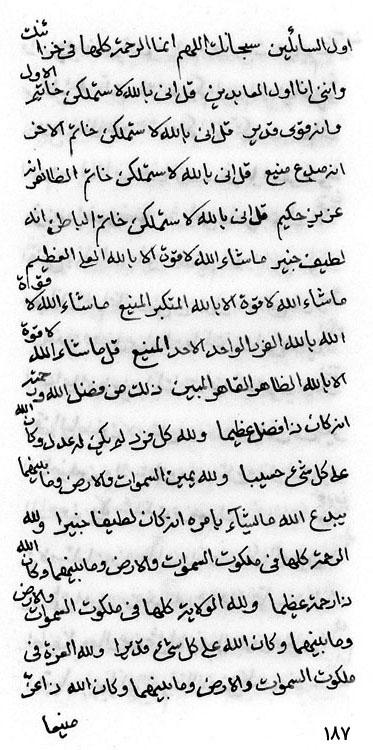 اول السائلين سبحانك اللهم انما الرحمة كلها في خزائنك
وانني انا اول العابدين قل انى بالله لاستملكن خاتم الاول
وانه قوى قدير قل انى بالله لاستملكن خاتم الاخر
انه صديع منيع قل انى بالله لاستملكن خاتم الظاهر انه
عزيز حكيم قل انى بالله لاستملكن خاتم الباطن انه
لطيف خبير ماشاء الله لا قوة الا بالله العلى العظيم
ماشاء الله لا قوة الا بالله المتكبر المنيع ماشاء الله لا قوة
الا بالله الفرد الواحد الاحد المنيع قل ماشاء الله لا قوة
الا بالله الظاهر القاهر المبين ذلك من فضل الله ورحمته
انه كان ذا فضل عظيما ولله كل فرد لم يكن له عدل وكان الله
على كل شىء حسيبا ولله يمين السموات والارض وما بينهما
يبدع الله ما يشاء بامره انه كان لطيفا خبيرا ولله
الرحمة كلها في ملكوت السموات والارض وما بينهما وكان الله
ذا رحمة عظيما ولله الولاية كلها في ملكوت السموات والارض
وما بينهما وكان الله على كل شىء قديرا ولله العزة في
ملكوت السموات والارض وما بينهما وكان الله ذا عز
منيعا
١٨٧